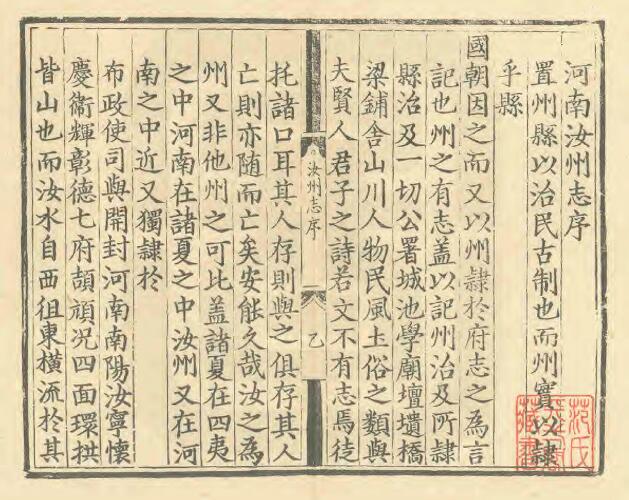 河南汝州志序
置州縣以治民古制也而州實以隸
乎縣
國朝因之而又以州隸於府志之為言
記也州之有志盖以記州治及所隸
縣治及一切公署城池學廟壇壝橋
梁鋪舍山川人物民風土俗之類與
夫賢人君子之詩若文不有志焉徒
汝州志序
乙
托諸口耳其人存則與之俱存其人
亡則亦隨而亡矣安能久哉汝之為
州又非他州之可比盖諸夏在四夷
之中河南在諸夏之中汝州又在河
南之中近又獨隸於
布政使司與開封河南南陽汝寧懷
慶衞輝彰德七府頡頏况四面環拱
皆山也而汝水自西徂東橫流於其
范氏
藏書